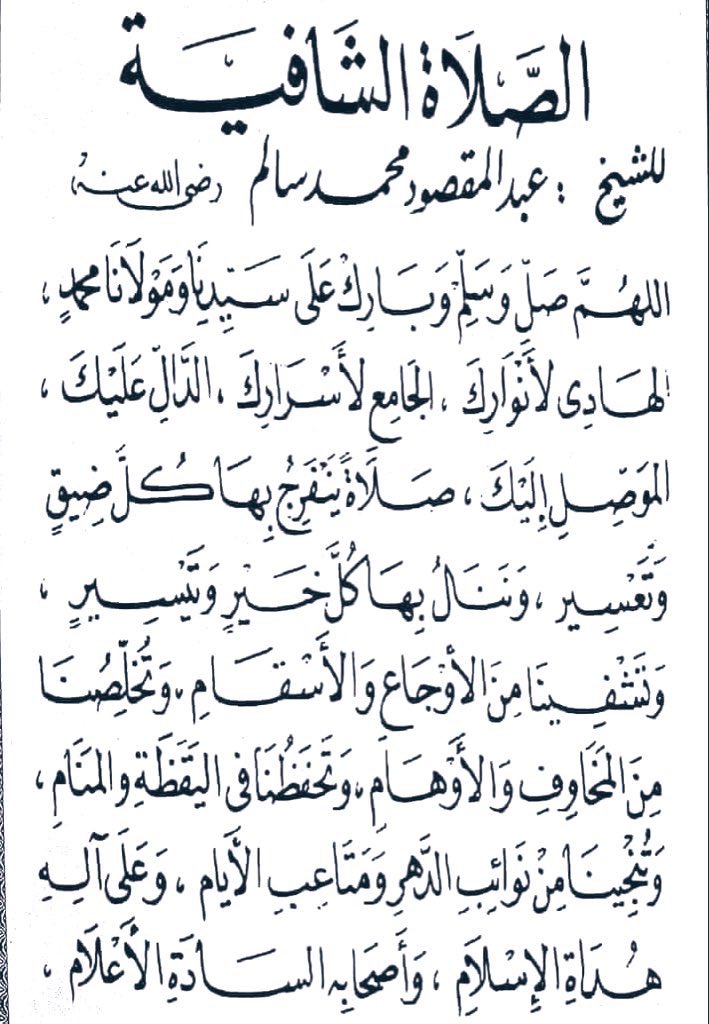 الصَّلَاة الشَّافية
للشيخ : عبد المقصود محمد سالم رضى الله عنه
اللهُمَّ صَلِّ وَسَلِّمْ وَبَارِكْ عَلَى سَيِّدِنَا وَمَوْلَانَا محمدٍ ،
الهَادِى لأَنْوَارِكَ ، الجَامِعِ لأَسْرَارِكَ ، الدَّالِّ عَلَيْكَ ،
المُوَصِّلِ إِلَيْكَ ، صَلَاةً يَنْفَرِجُ بِهَا كُلُّ ضِيقٍ
وَتَعْسِيرٍ ، وَنَنَالُ بِهَا كُلَّ خَيْرٍ وَتَيْسِيرٍ ،
وَتَشْفِينَا مِنَ الأَوْجَاعِ وَالأَسْقَامِ ، وَتُخَلِّصُنَا
مِنَ المَخَاوِفِ وَالأَوْهَامِ ، وَتَحْفَظُنَا فى اليَقَظَةِ والمَنَامِ ،
وَتُنْجِينَا مِنْ نَوَائِبِ الدَّهرِ وَمَتَاعِبِ الأَيَّامِ ، وَعَلَى آلِهِ
هُدَاةِ الإِسْلَامِ ، وَأَصْحَابِهِ السَادَةِ الأَعْلَامِ ،